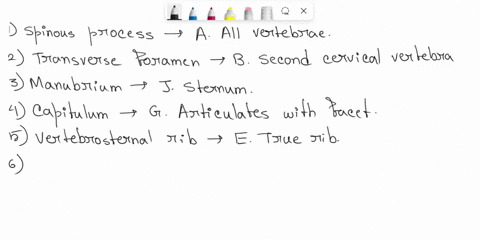 1) Spinous process → A. All vertebrae.
2) Transverse Foramen → B. Second cervical vertebra
3) Manubrium → J. Sternum.
4) Capitulum → G. Articulates with facet.
5) Vertebrosternal rib → E. True rib.
6)